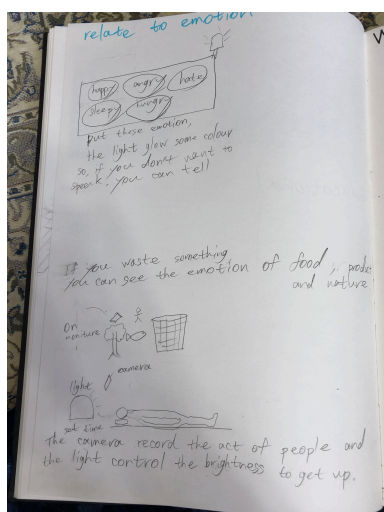 relate to emotion
happy angry hate
sleepy hungry
put these emotion,
the light glow some colour
so, if you don't want to
speak, you can tell
If you waste something,
you can see the emotion of food, product
and nature
On
camera
light
set time
The camera record the act of people and
the light control the brightness to get up.